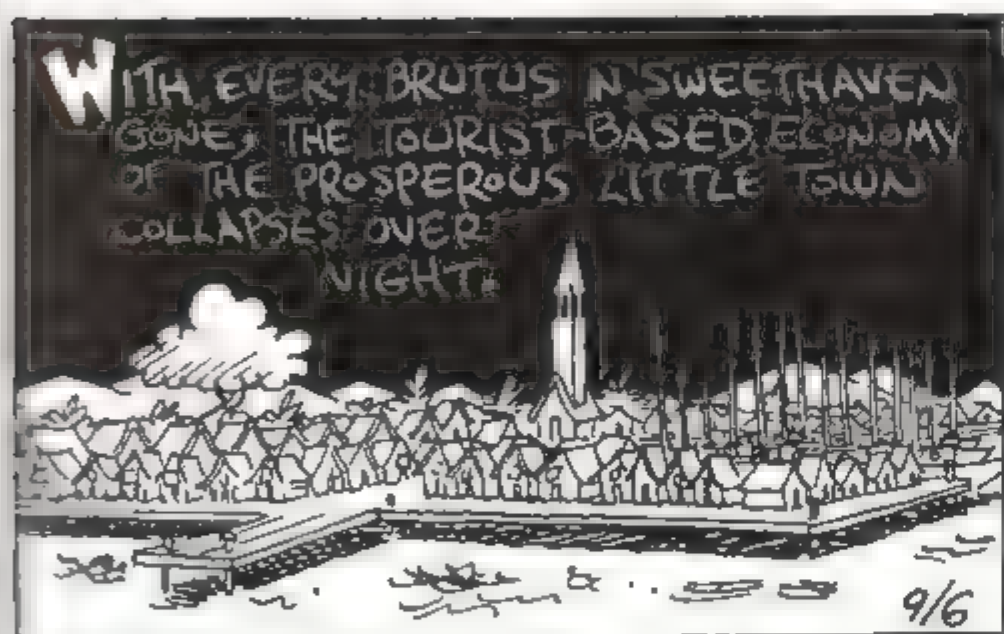 WITH EVERY BRUTUS IN SWEETHAVEN
GONE, THE TOURIST-BASED ECONOMY
OF THE PROSPEROUS LITTLE TOWN
COLLAPSES OVER
NIGHT.
9/6